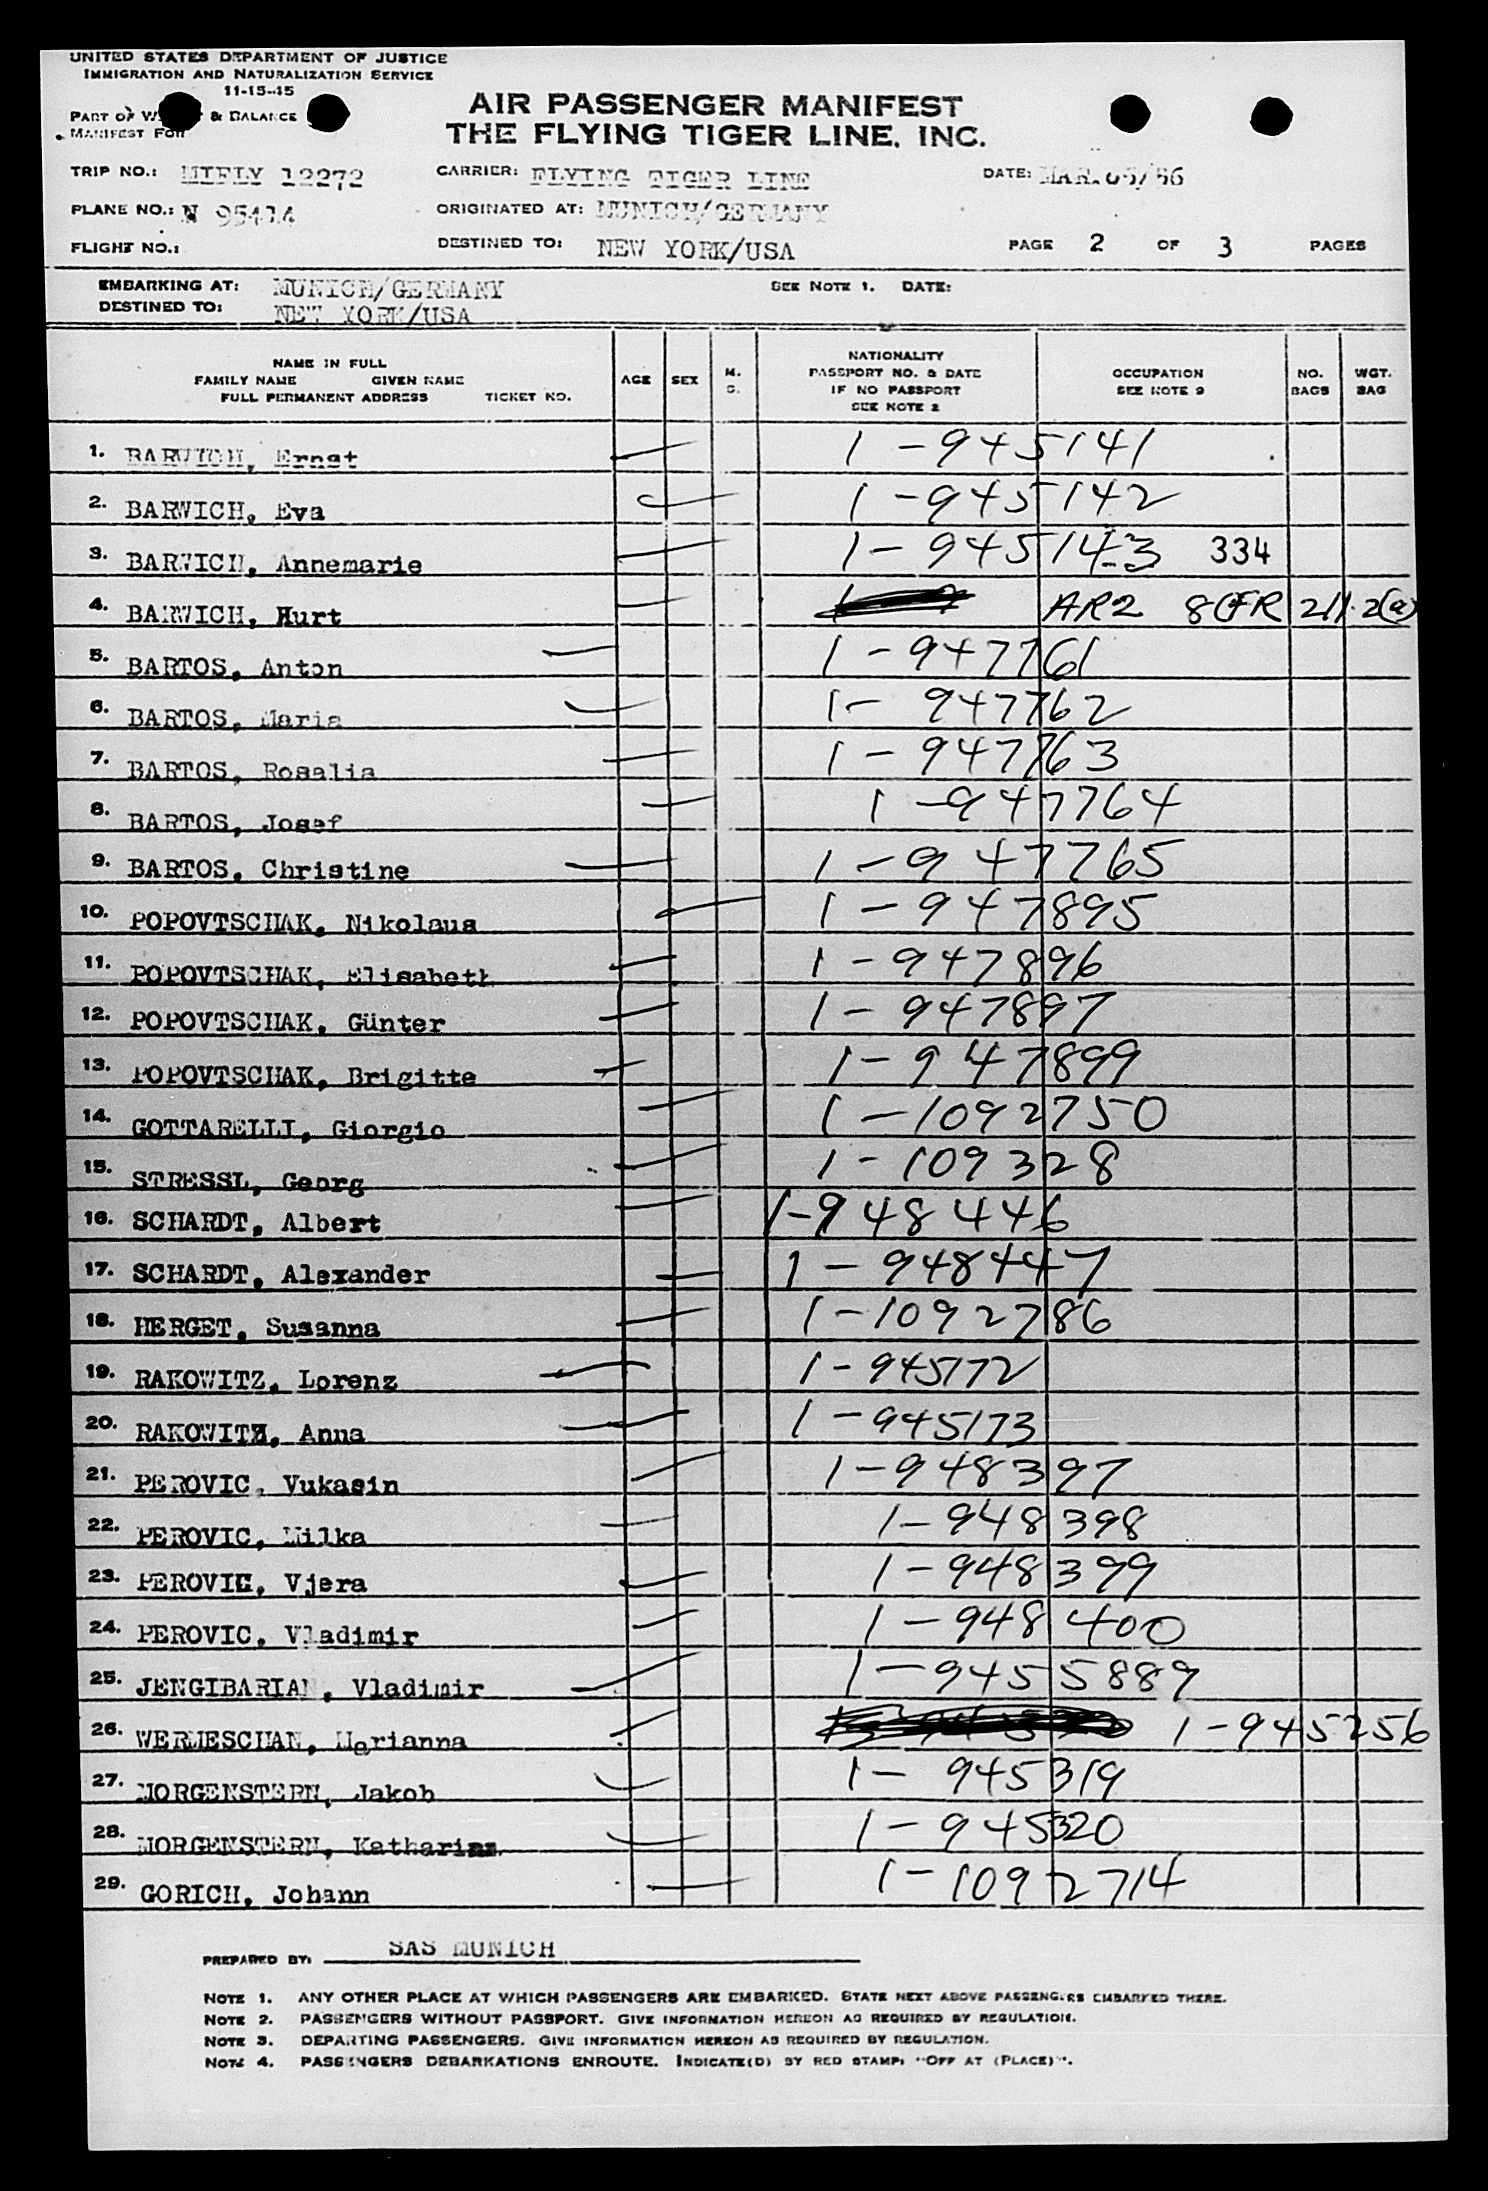 UNITED STATES DEPARTMENT OF JUSTICE
IMMIGRATION AND NATURALIZATION SERVICE
11-15-45
PART OF & BALANCE
MANIFEST FOR
AIR PASSENGER MANIFEST
THE FLYING TIGER LINE, INC.
TRIP NO.: MIFLY 12272 CARRIER: FLYING TIGER LINE DATE: MAR.05/56
PLANE NO.: N 95414 ORIGINATED AT: MUNICH/GERMANY
FLIGHT NO.: DESTINED TO: NEW YORK/USA PAGE 2 OF 3 PAGES
EMBARKING AT: MUNICH/GERMANY SEE NOTE 1. DATE:
DESTINED TO: NEW YORK/USA
NAME IN FULL
FAMILY NAME GIVEN NAME
FULL PERMANENT ADDRESS TICKET NO. AGE SEX M. S. NATIONALITY PASSPORT NO. & DATE IF NO PASSPORT SEE NOTE 2 OCCUPATION SEE NOTE 9 NO. BAGS WGT. BAG
1. BARWICH, Ernst 1-945141
2. BARWICH, Eva 1-945142
3. BARWICH, Annemarie 1-945143 334
4. BARWICH, Kurt AR2 8CFR 211.2(a)
5. BARTOS, Anton 1-947761
6. BARTOS, Maria 1-947762
7. BARTOS, Rosalia 1-947763
8. BARTOS, Josef 1-947764
9. BARTOS, Christine 1-947765
10. POPOVTSCHAK, Nikolaus 1-947895
11. POPOVTSCHAK, Elisabeth 1-947896
12. POPOVTSCHAK, Günter 1-947897
13. POPOVTSCHAK, Brigitte 1-947899
14. GOTTARELLI, Giorgio 1-1092750
15. STRESSL, Georg 1-109328
16. SCHARDT, Albert 1-948446
17. SCHARDT, Alexander 1-948447
18. HERGET, Susanna 1-1092786
19. RAKOWITZ, Lorenz 1-945172
20. RAKOWITZ, Anna 1-945173
21. PEROVIC, Vukasin 1-948397
22. PEROVIC, Milka 1-948398
23. PEROVIC, Vjera 1-948399
24. PEROVIC, Vladimir 1-948400
25. JENGIBARIAN, Vladimir 1-9455889
26. WERMESCHAN, Marianna 1-945256
27. MORGENSTERN, Jakob 1-945319
28. MORGENSTERN, Katharina 1-945320
29. GORICH, Johann 1-1092714
PREPARED BY: SAS MUNICH
NOTE 1. ANY OTHER PLACE AT WHICH PASSENGERS ARE EMBARKED. STATE NEXT ABOVE PASSENGERS EMBARKED THERE.
NOTE 2. PASSENGERS WITHOUT PASSPORT. GIVE INFORMATION HEREON AS REQUIRED BY REGULATION.
NOTE 3. DEPARTING PASSENGERS. GIVE INFORMATION HEREON AS REQUIRED BY REGULATION.
NOTE 4. PASSENGERS DEBARKATIONS ENROUTE. INDICATE(D) BY RED STAMP: "OFF AT (PLACE)".